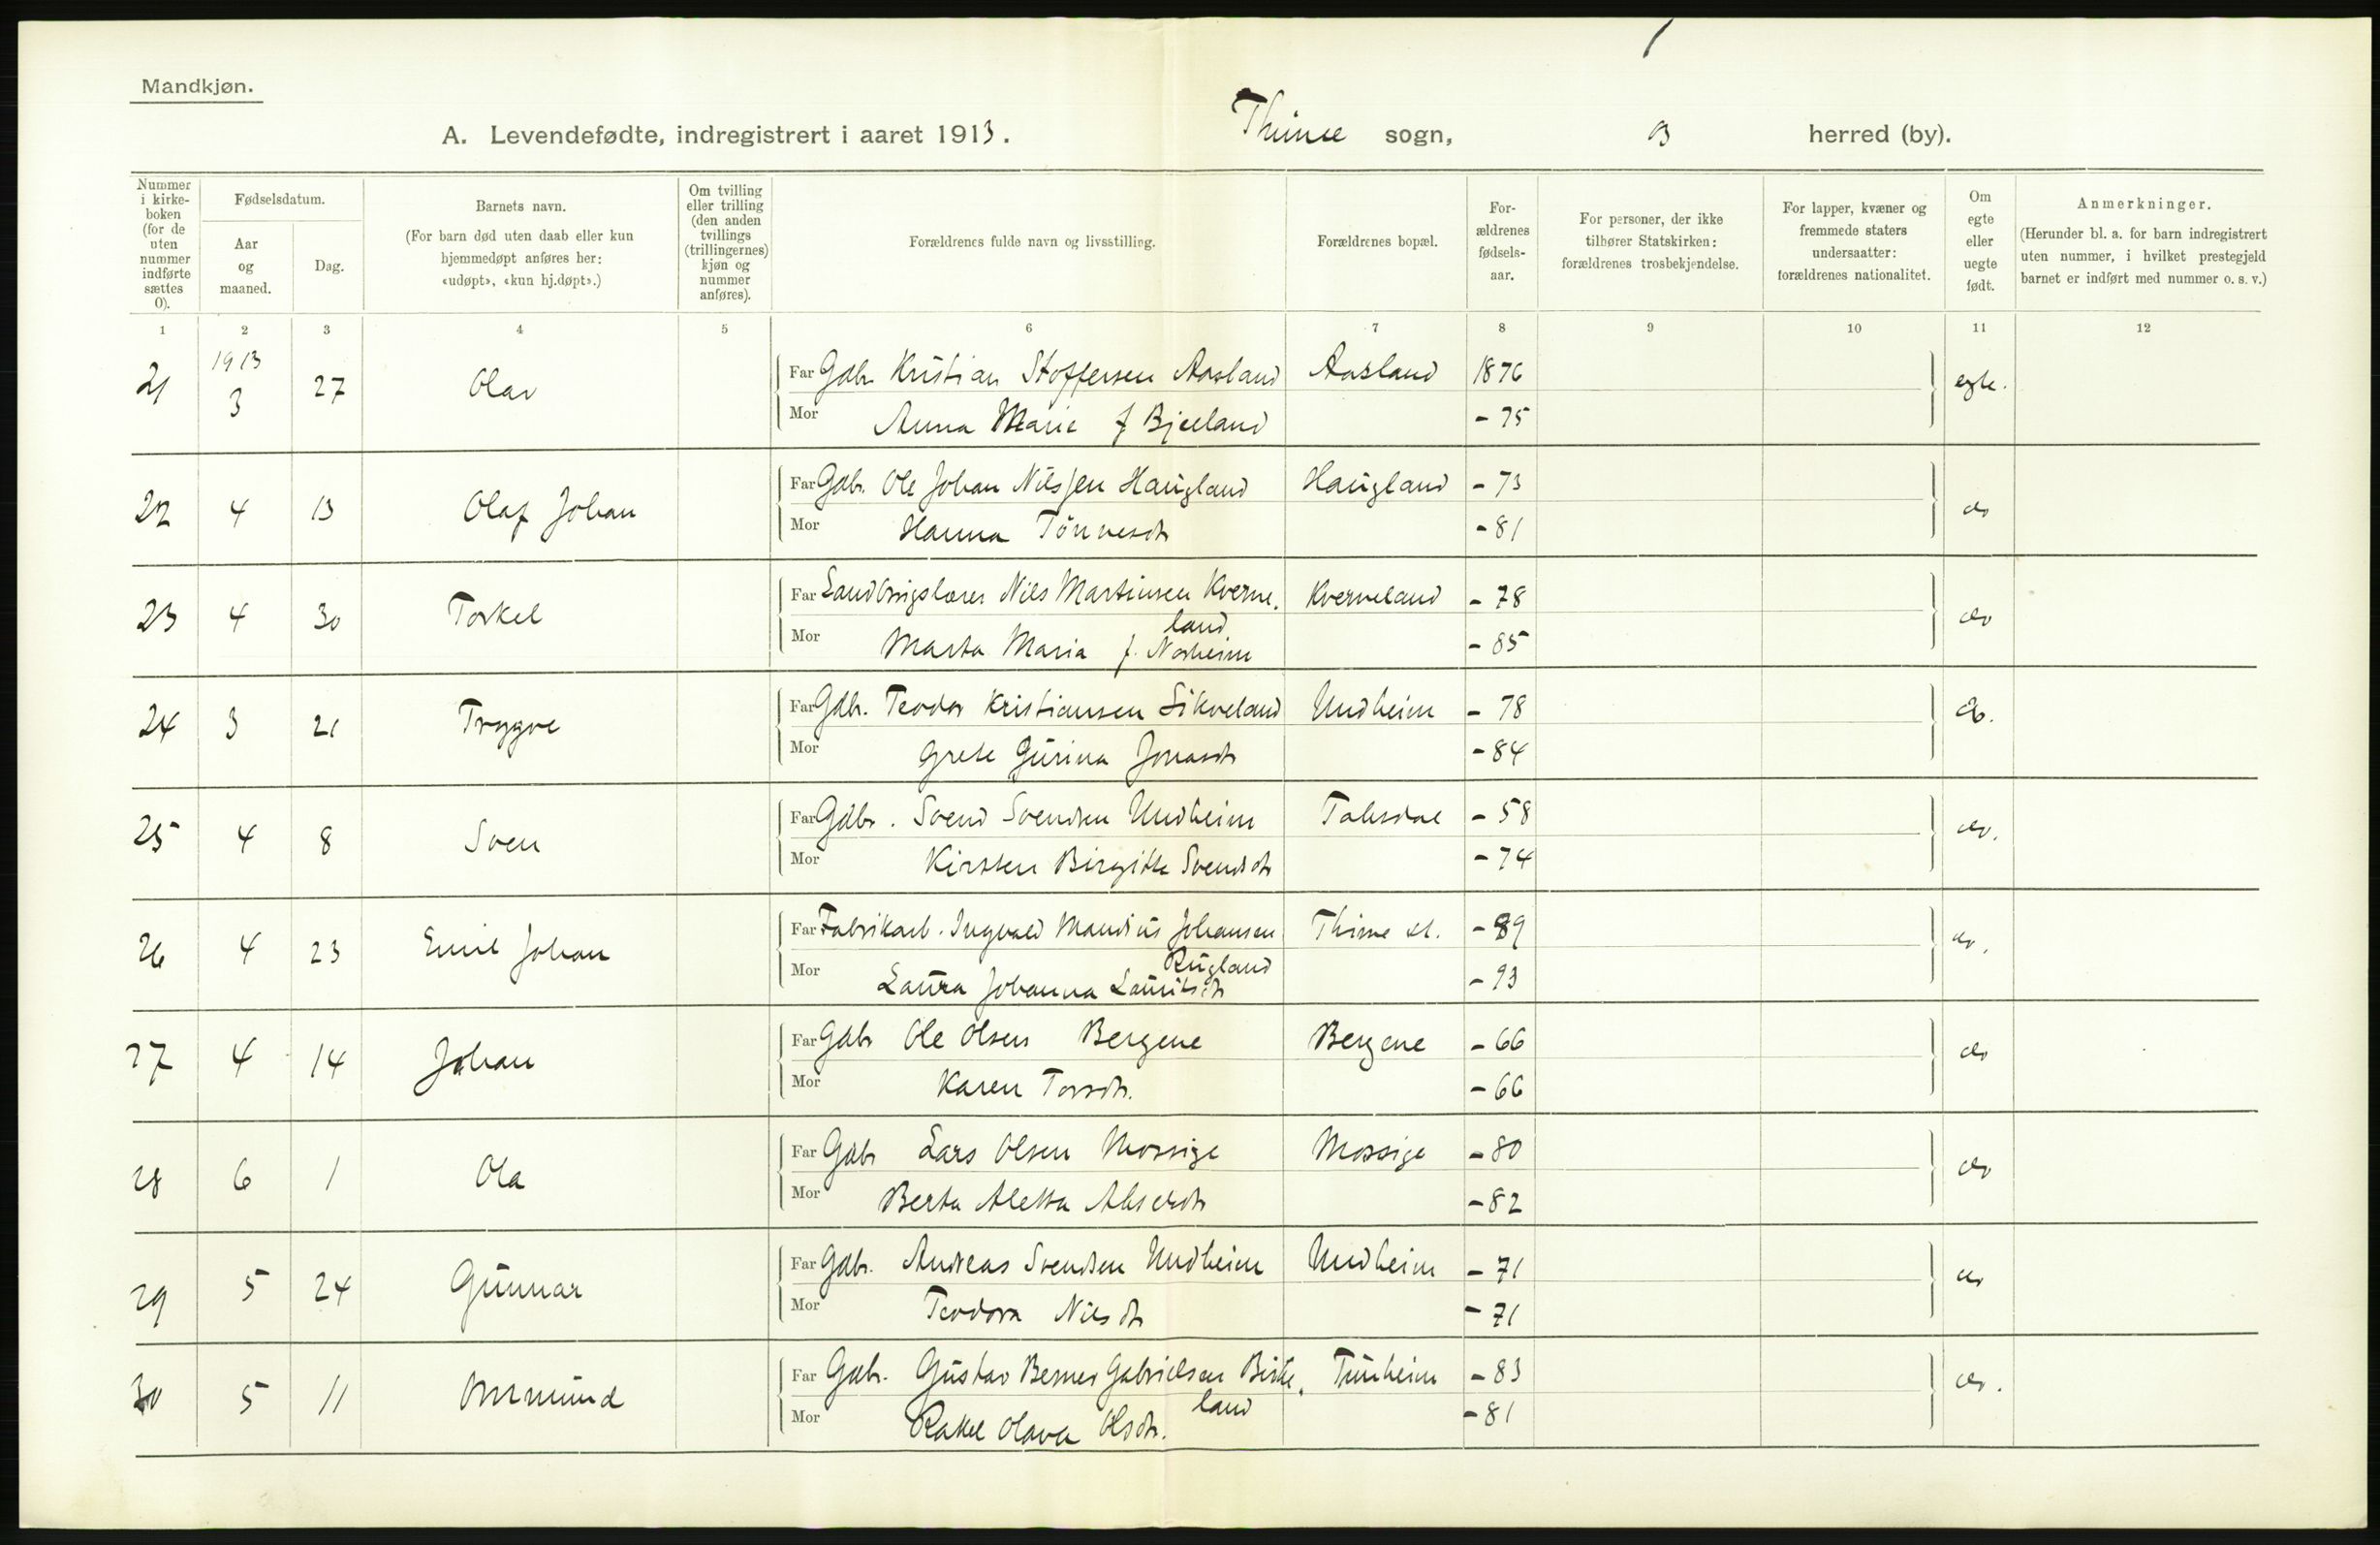 Mandkjøn.
A. Levendefødte, indregistrert i aaret 1913. Thime sogn, herred (by).
Nummer i kirke-boken (for de uten nummer indførte sættes 0).
Fødselsdatum.
Aar og maaned.
Dag.
Barnets navn.
(For barn død uten daab eller kun hjemmedøpt anføres her: «udøpt», «kun hj.døpt».)
Om tvilling eller trilling (den anden tvillings (trillingernes) kjøn og nummer anføres).
Forældrenes fulde navn og livsstilling.
Forældrenes bopæl.
For-ældrenes fødsels-aar.
For personer, der ikke tilhører Statskirken: forældrenes trosbekjendelse.
For lapper, kvæner og fremmede staters undersaatter: forældrenes nationalitet.
Om egte eller uegte født.
Anmerkninger.
(Herunder bl. a. for barn indregistrert uten nummer, i hvilket prestegjeld barnet er indført med nummer o. s. v.)
1 2 3 4 5 6 7 8 9 10 11 12
1913
21 3 27 Olav Far Gdbr. Kristian Stoffersen Aasland Aasland 1876 egte.
Mor Anna Marie f Bjelland - 75
22 4 13 Olaf Johan Far Gdbr. Ole Johan Nilssen Haugland Haugland - 73 do
Mor Hanna Tönnesdtr - 81
23 4 30 Torkel Far Landbrugslærer Nils Martinsen Kverne. Kverneland - 78 do
land
Mor Marta Maria f. Norheim - 85
24 3 21 Trygve Far Gdbr. Teodor Kristiansen Sikveland Undheim - 78 do.
Mor Grete Gurina Jonasdtr - 84
25 4 8 Sven Far Gdbr. Svend Svendsen Undheim - 58 do.
Mor Kirsten Birgitte Svendsdtr - 74
26 4 23 Emil Johan Far Fabrikarb. Ingvald Mandius Johansen Thime st. - 89 do.
Rugland
Mor Laura Johanna Lauritsdtr - 93
27 4 14 Johan Far Gdbr Ole Olsen Bergene Bergene - 66 do
Mor Karen Torsdtr. - 66
28 6 1 Ola Far Gdbr Lars Olsen Mossige Mossige - 80 do
Mor Berta Aletta - 82
29 5 24 Gunnar Far Gdbr. Andreas Svendsen Undheim Undheim - 71 do
Mor Teodora Nilsdtr - 71
30 5 11 Ommund Far Gdbr. Gustav Berner Gabrielsen Birke. Tunheim - 83 do.
land
Mor Rakel Olava Olsdtr. - 81